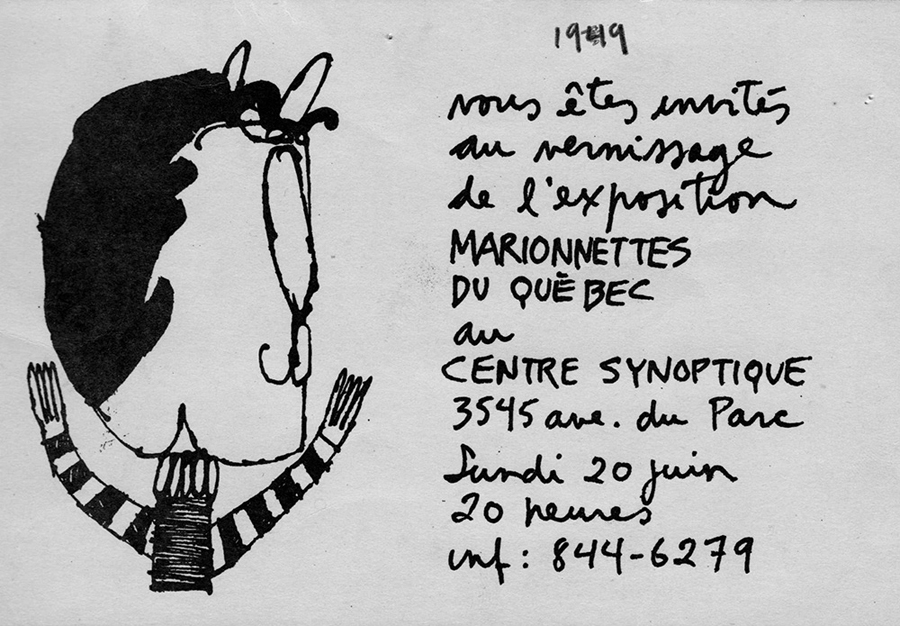 1949
vous êtes invités
au vernissage
de l'exposition
MARIONNETTES
DU QUÉBEC
au
CENTRE SYNOPTIQUE
3545 ave. du Parc
Lundi 20 juin
20 heures
inf: 844-6279